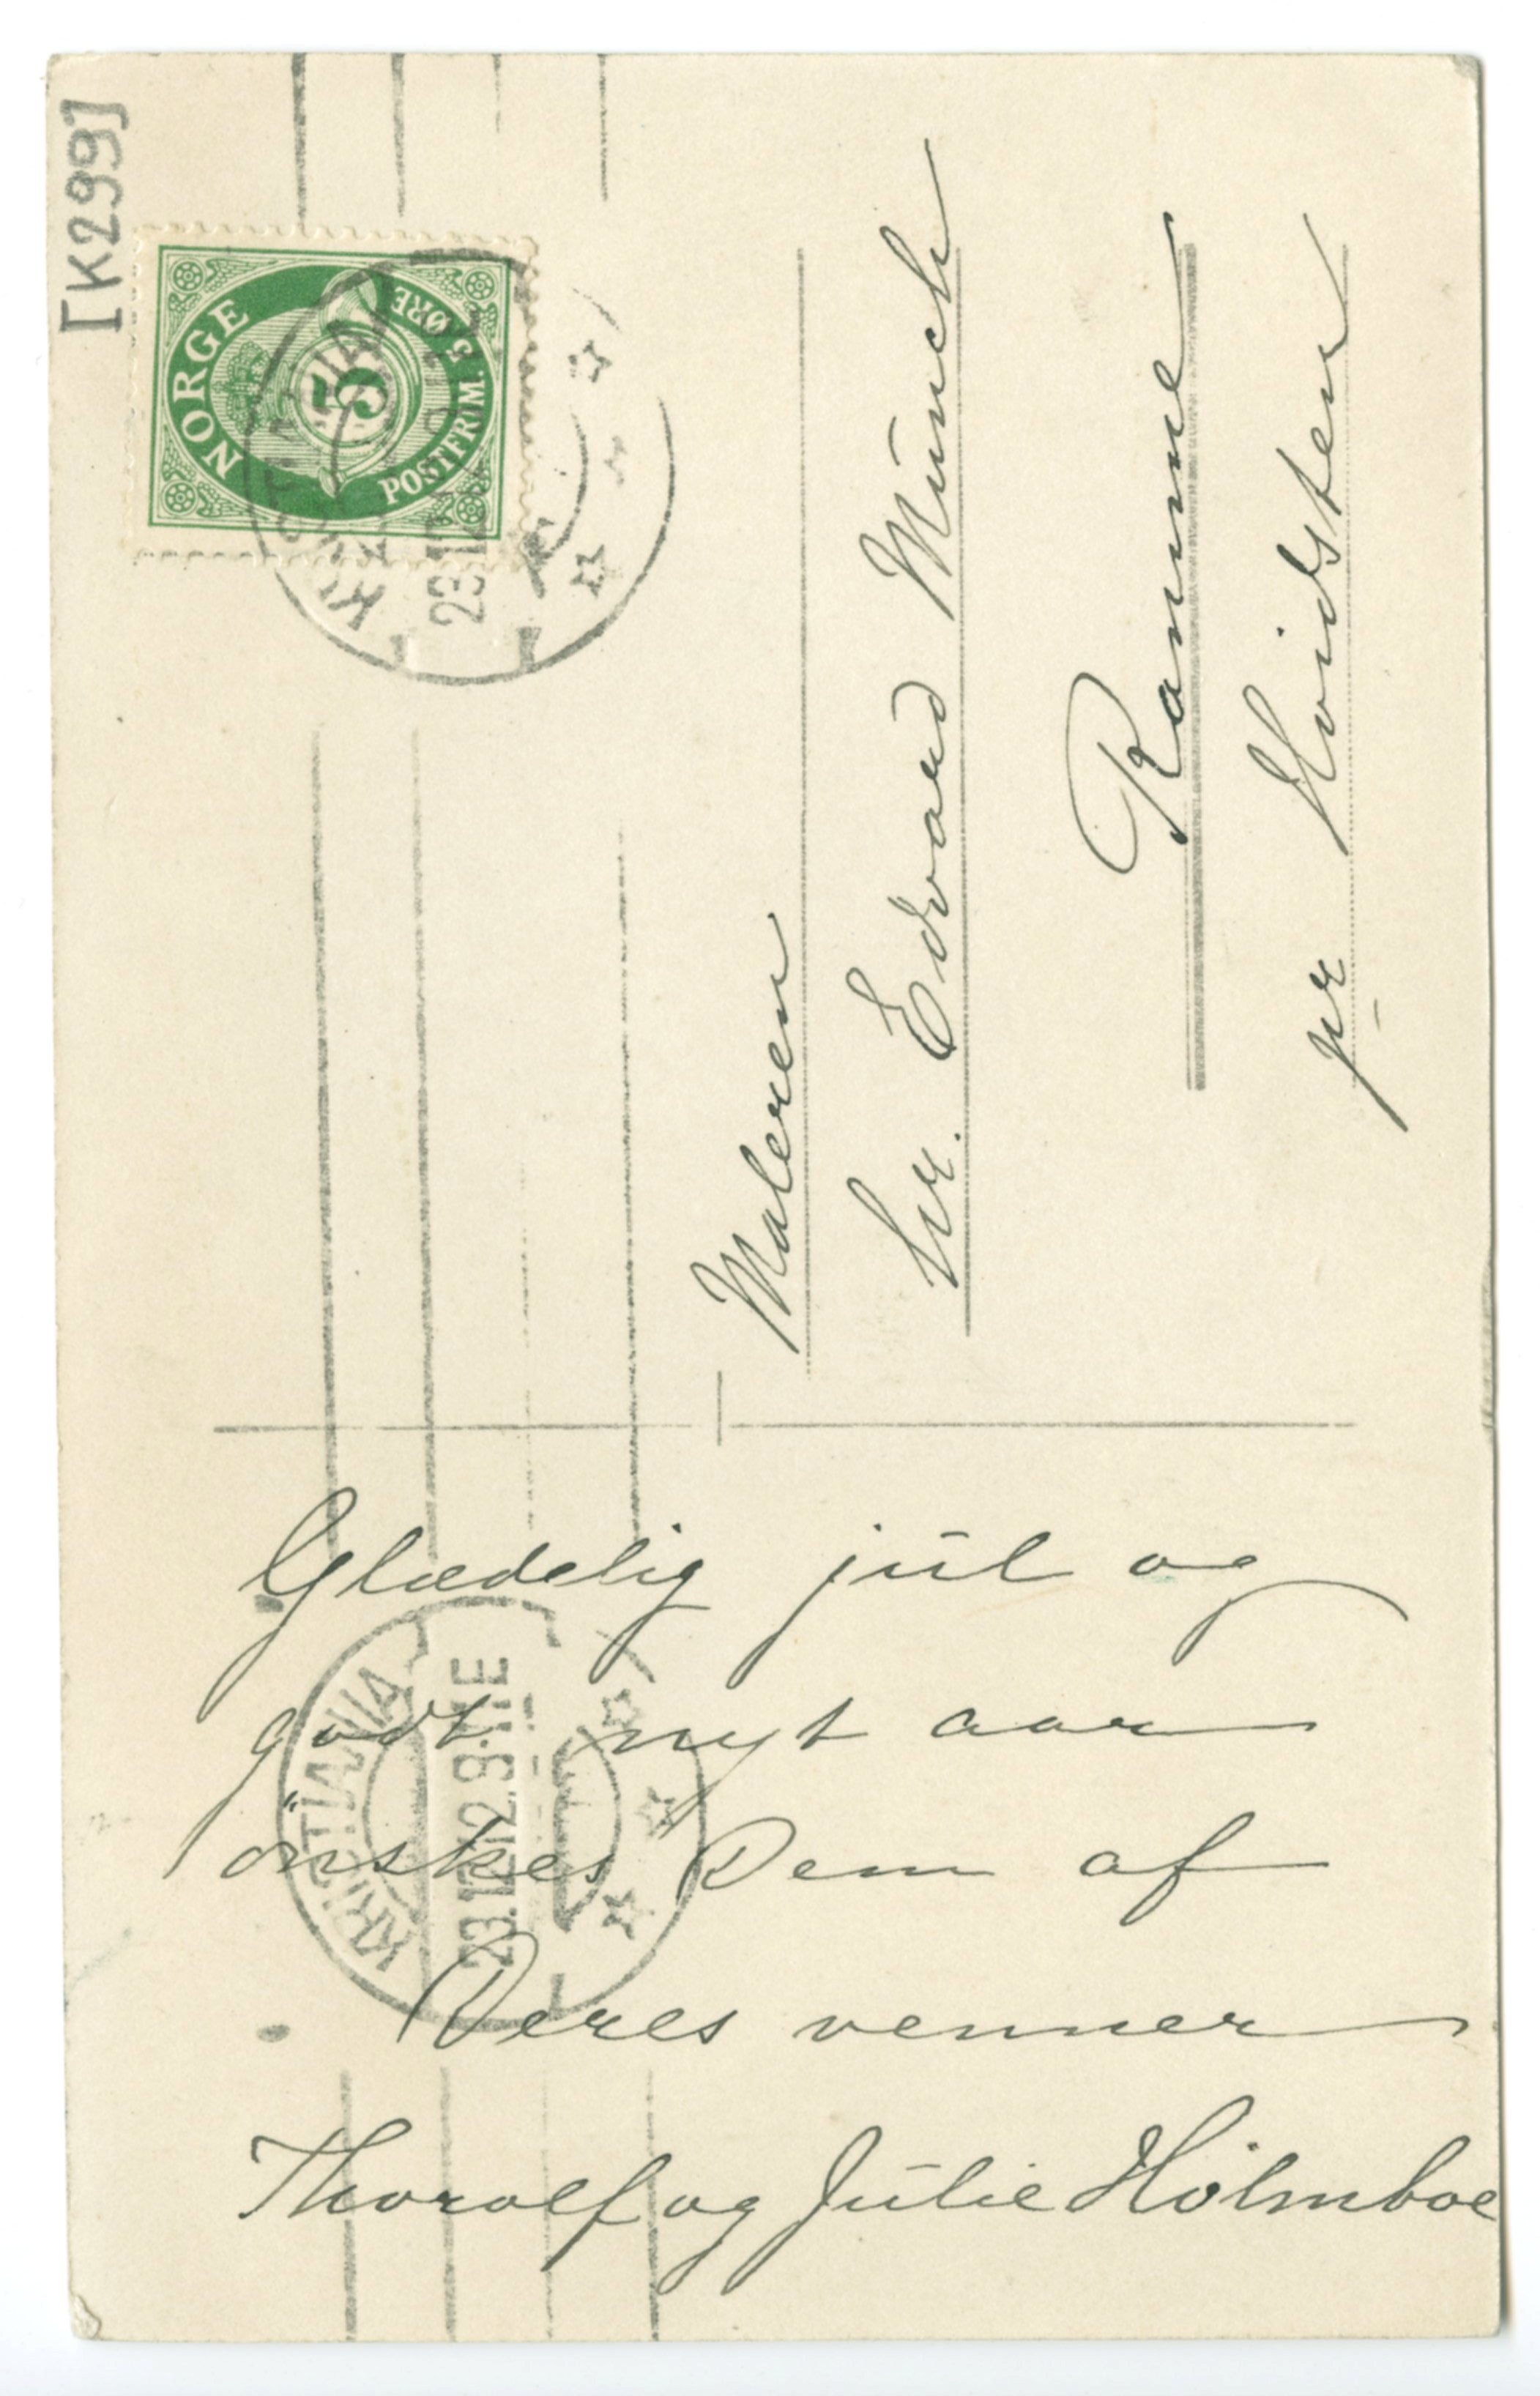 [K299]
NORGE
5
POSTFRIM. 5 ØRE
KRISTIANIA
23.12.12.9
Maleren
hr. Edvard Münch
Ramme
pr Hvidsten
Glædelig jul og
godt nyt aar
önskes Dem af
Deres venner
Thorolf og Julie Holmboe
KRISTIANIA
23.12.12.9-ME